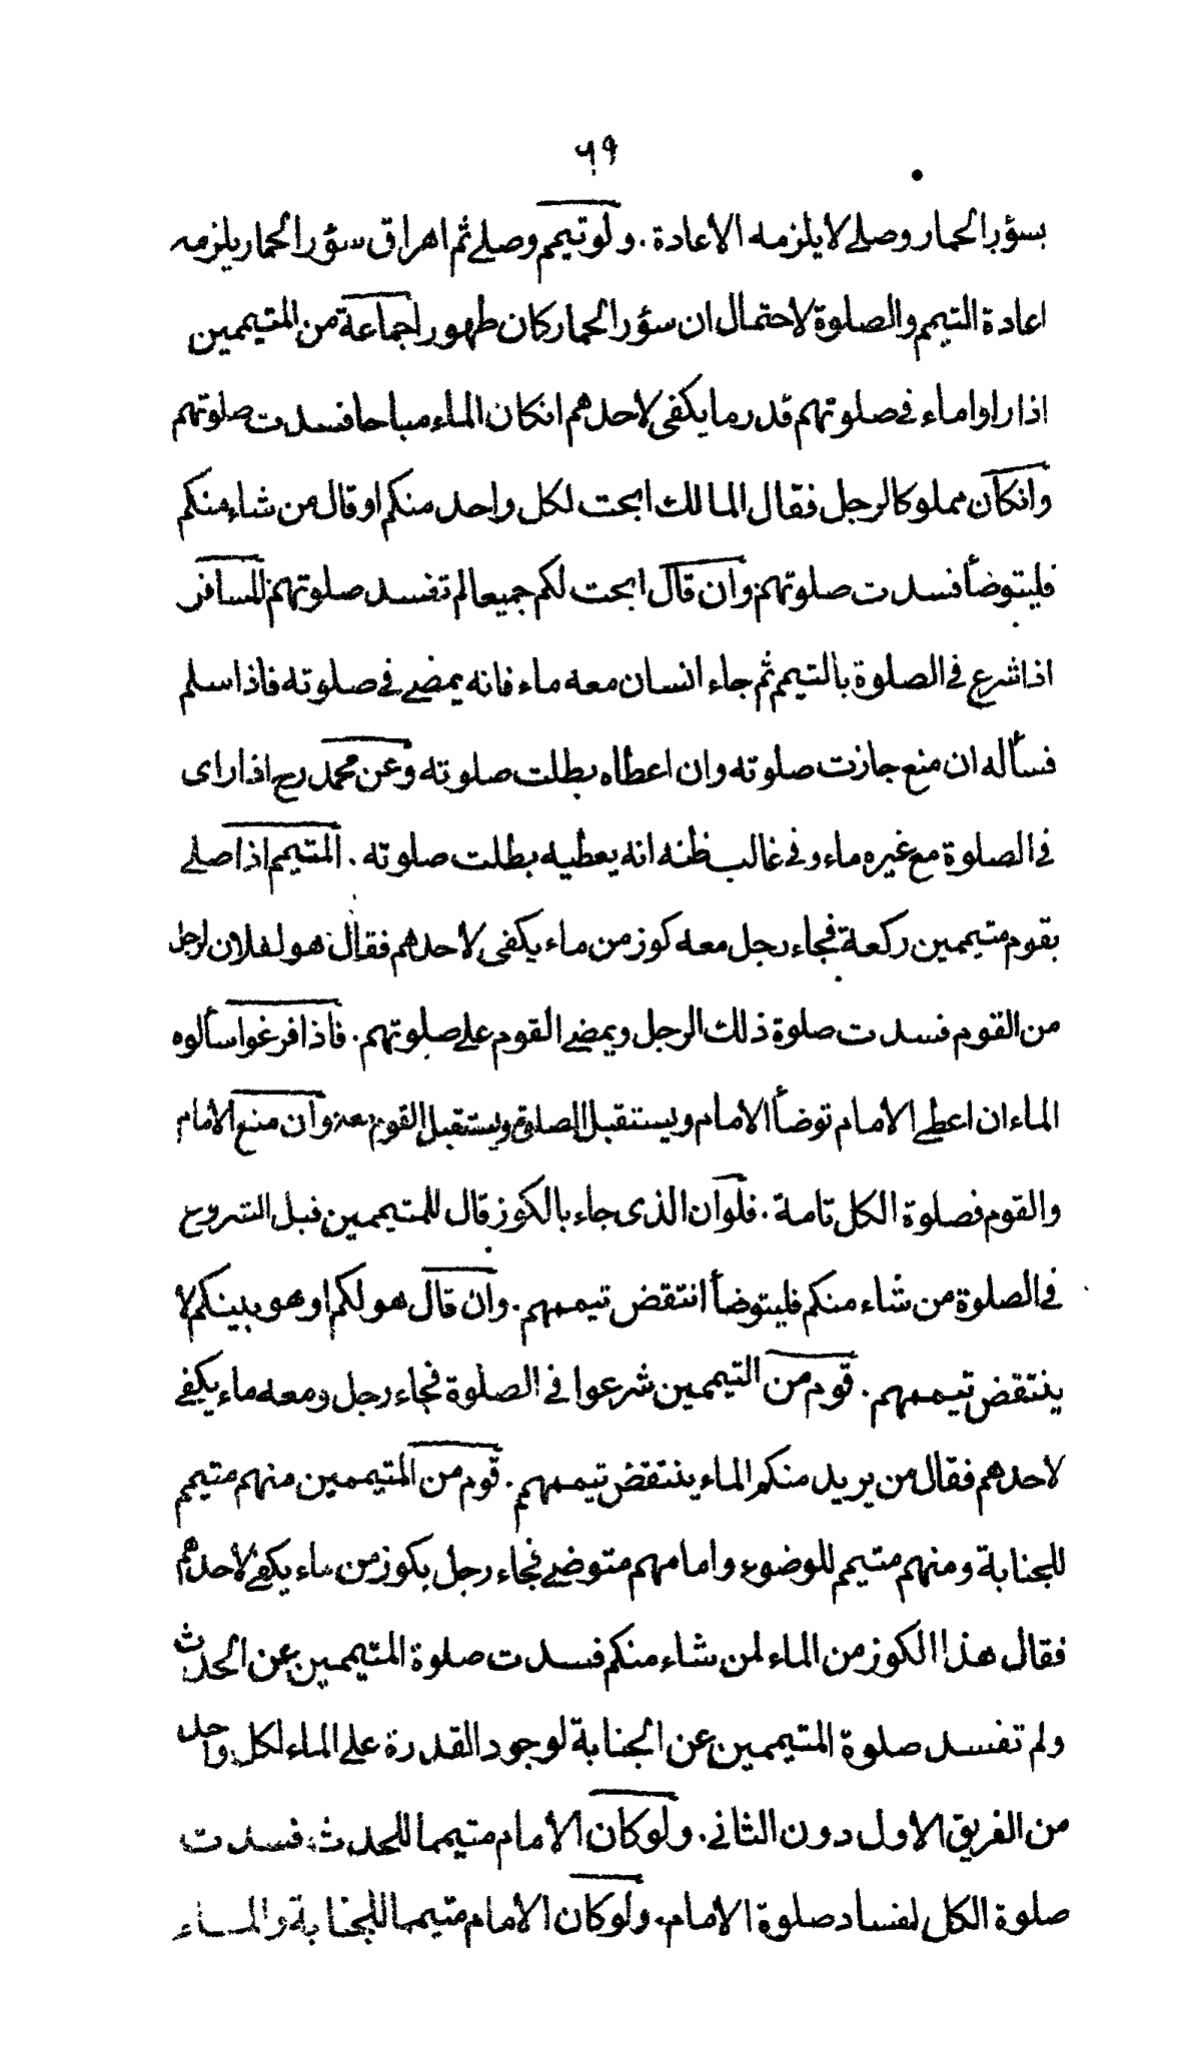 ٦٩
بسؤر الحمار وصلى لا يلزمه الاعادة. ولو تيمم وصلى ثم اهراق سؤر الحمار يلزمه
اعادة التيمم والصلوة لاحتمال ان سؤر الحمار كان طهورا جماعة من المتيممين
اذا راوا ماء فى صلوتهم قدر ما يكفى لاحدهم انكان الماء مباحا فسدت صلوتهم
وانكان مملوكا لرجل فقال المالك ابحت لكل واحد منكم او قال من شاء منكم
فليتوضأ فسدت صلوتهم وان قال ابحت لكم جميعا لم تفسد صلوتهم المسافر
اذا شرع فى الصلوة بالتيمم ثم جاء انسان معه ماء فانه يمضى فى صلوته فاذا سلم
فسأله ان منع جازت صلوته وان اعطاه بطلت صلوته وعن محمد رح اذا راى
فى الصلوة مع غيره ماء وفى غالب ظنه انه يعطيه بطلت صلوته. المتيمم اذا صلى
بقوم متيممين ركعة فجاء رجل معه كوز من ماء يكفى لاحدهم فقال هو لفلان لرجل
من القوم فسدت صلوة ذلك الرجل ويمضى القوم على صلوتهم. فاذا فرغوا سألوه
الماء ان اعطى الامام توضأ الامام ويستقبل الصلوة ويستقبل القوم معه وان منع الامام
والقوم فصلوة الكل تامة. فلو ان الذى جاء بالكوز قال للمتيممين قبل الشروع
فى الصلوة من شاء منكم فليتوضأ انتقض تيممهم. وان قال هو لكم او هو بينكم لا
ينتقض تيممهم. قوم من التيممين شرعوا فى الصلوة فجاء رجل ومعه ماء يكفى
لاحدهم فقال من يريد منكم الماء ينتقض تيممهم. قوم من المتيممين منهم متيمم
للجنابة ومنهم متيمم للوضوء وامامهم متوضى فجاء رجل بكوز من ماء يكفى لاحدهم
فقال هذا الكوز من الماء لمن شاء منكم فسدت صلوة المتيممين عن الحدث
ولم تفسد صلوة المتيممين عن الجنابة لوجود القدرة على الماء لكل واحد
من الفريق الاول دون الثانى. ولو كان الامام متيمما للحدث فسدت
صلوة الكل لفساد صلوة الامام. ولو كان الامام متيمما للجنابة والماء